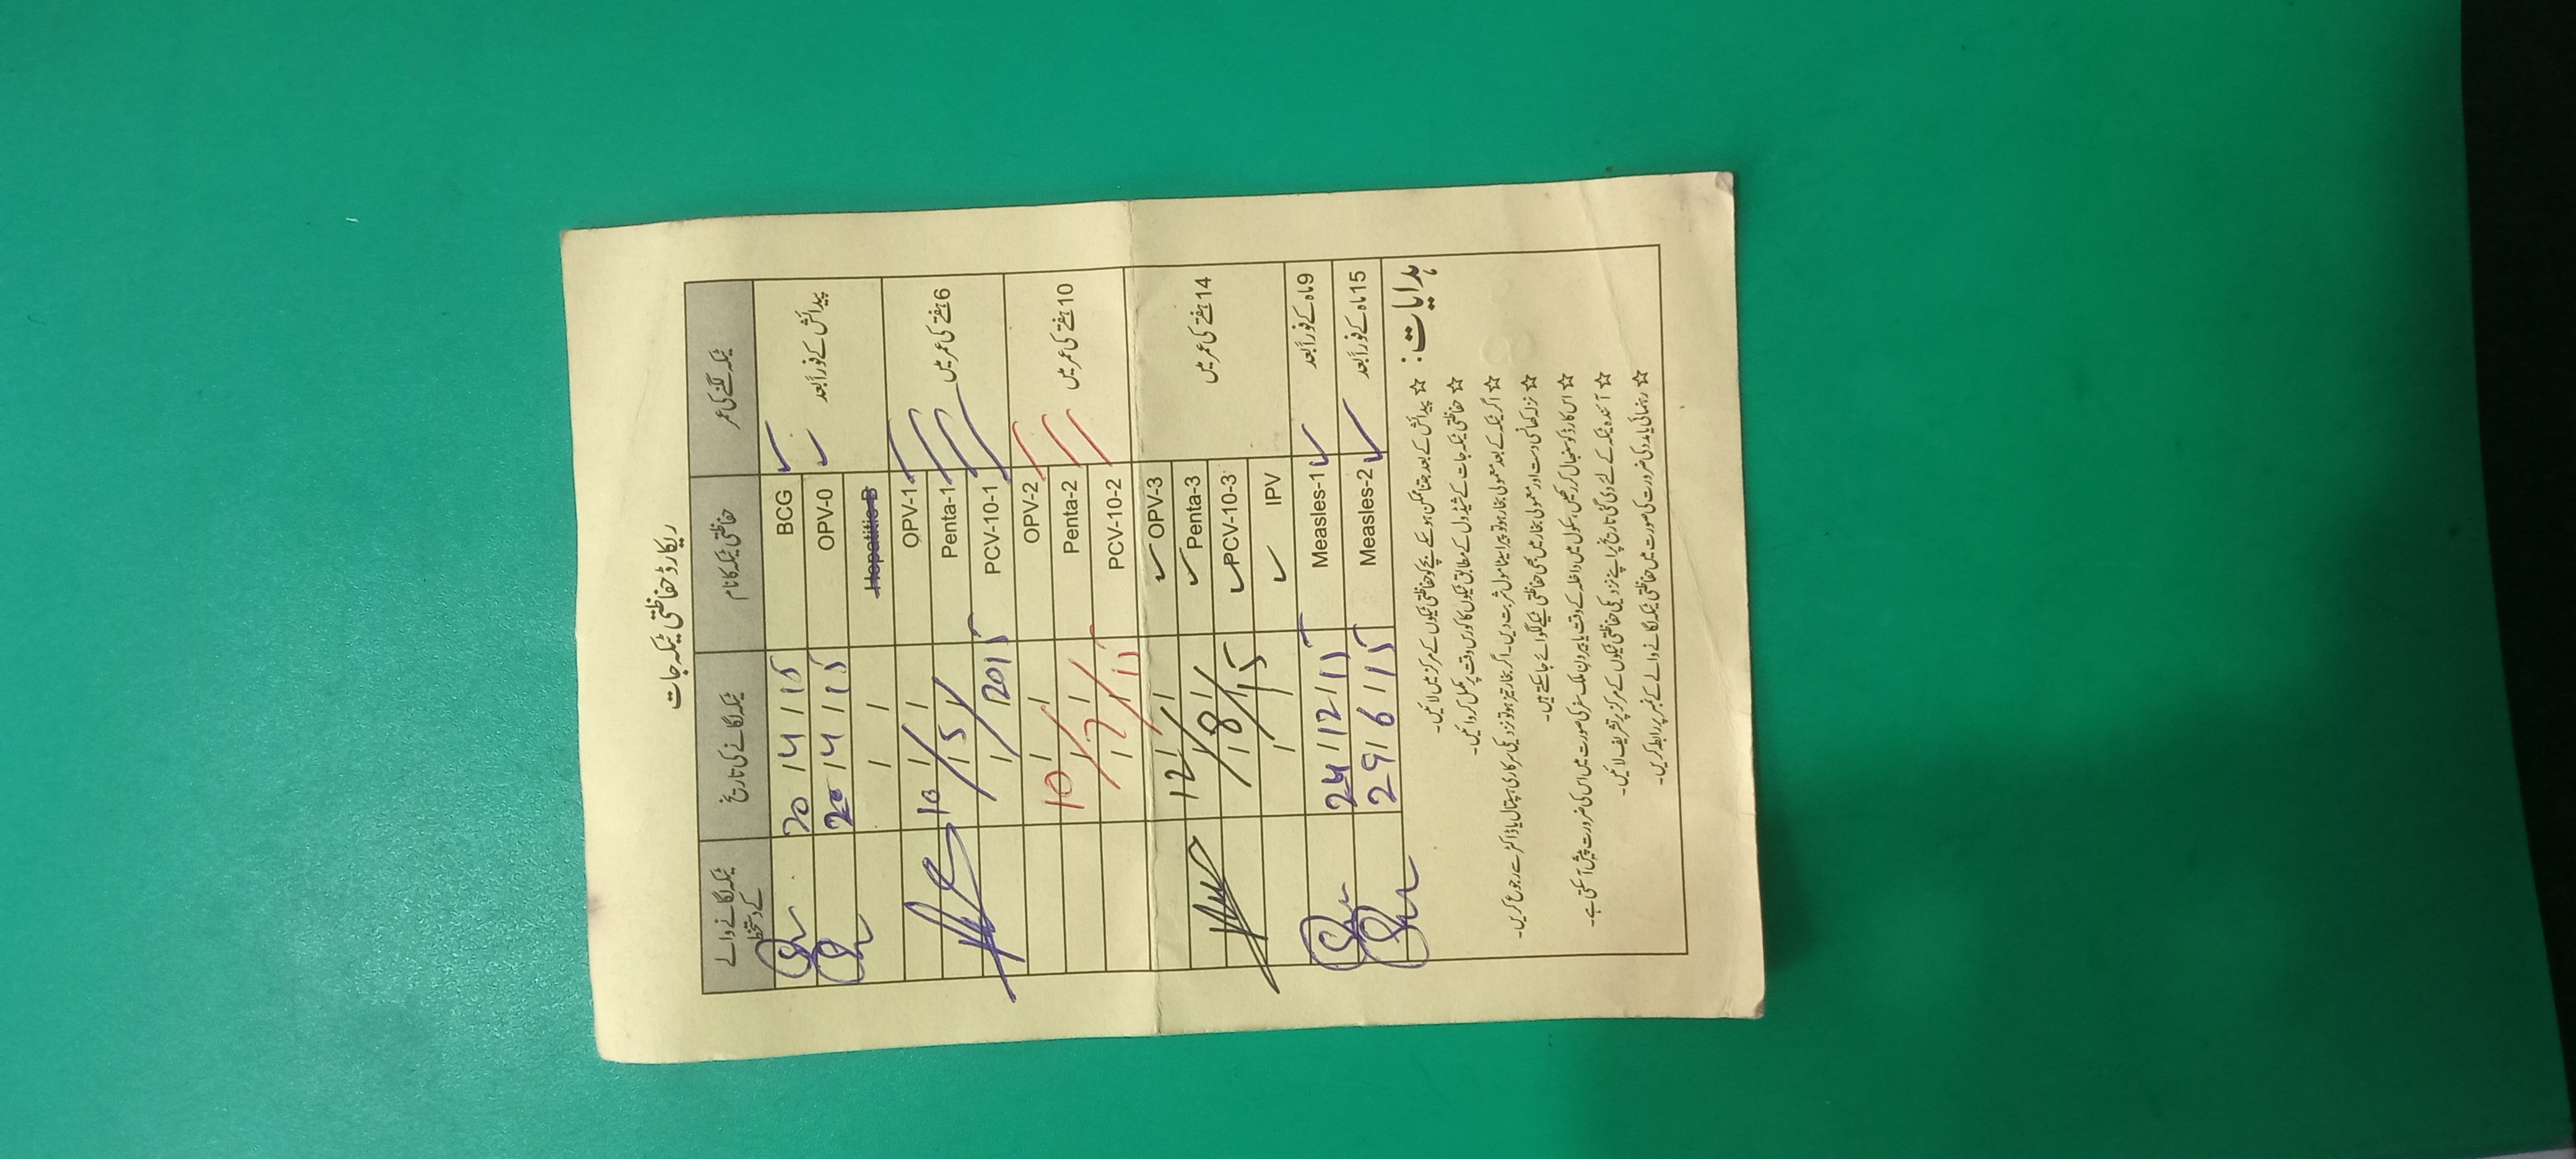 ریکارڈ حفاظتی ٹیکہ جات
ٹیکہ لگنے کی عمر حفاظتی ٹیکہ کا نام ٹیکہ لگانے کی تاریخ ٹیکہ لگانے والے کے دستخط
پیدائش کے فوراً بعد
BCG 20/4/15
OPV-0 20/4/15
Hepatitis-B
6 ہفتے کی عمر میں
OPV-1
Penta-1 10/5/2015
PCV-10-1
10 ہفتے کی عمر میں
OPV-2
Penta-2 10/7/15
PCV-10-2
14 ہفتے کی عمر میں
OPV-3
Penta-3 12/8/15
PCV-10-3
IPV
9 ماہ کے فوراً بعد Measles-1 24/12/15
15 ماہ کے فوراً بعد Measles-2 29/6/15
ہدایات:
☆ پیدائش کے بعد جتنا ممکن ہو سکے بچے کو حفاظتی ٹیکوں کے مرکز میں لائیں۔
☆ حفاظتی ٹیکہ جات کے شیڈول کے مطابق ٹیکوں کا کورس وقت پر مکمل کروائیں۔
☆ اگر ٹیکہ کے بعد معمولی بخار ہو تو پیراسیٹامول شربت دیں۔ اگر بخار تیز ہو تو نزدیکی سرکاری ہسپتال یا ڈاکٹر سے رجوع کریں۔
☆ نزلہ کھانسی دست اور معمولی بخار میں بھی حفاظتی ٹیکے لگوائے جا سکتے ہیں۔
☆ اس کارڈ کو سنبھال کر رکھیں، سکول میں داخلہ کے وقت یا بیرون ملک سفر کی صورت میں اس کی ضرورت پیش آ سکتی ہے۔
☆ آئندہ ٹیکہ کے لئے دی گئی تاریخ پر اپنے نزدیکی حفاظتی ٹیکوں کے مرکز پر تشریف لائیں۔
☆ رہنمائی یا مدد کی ضرورت کی صورت میں حفاظتی ٹیکہ لگانے والے کے نمبر پر رابطہ کریں۔